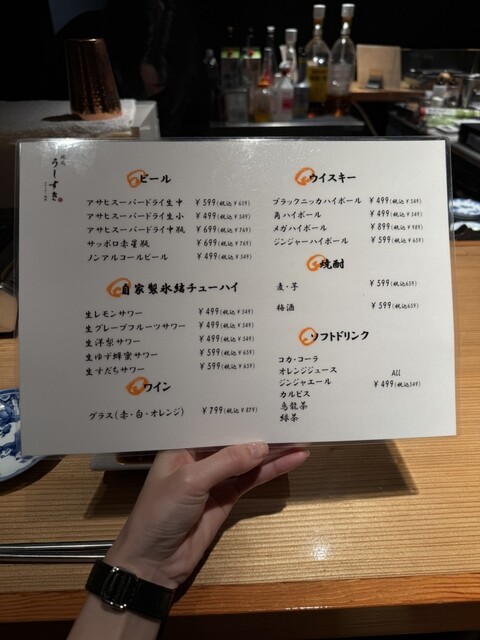 うしすき
ビール
アサヒスーパードライ生中 ¥599(税込¥659)
アサヒスーパードライ生小 ¥499(税込¥549)
アサヒスーパードライ中瓶 ¥699(税込¥769)
サッポロ赤星瓶 ¥699(税込¥769)
ノンアルコールビール ¥499(税込¥549)
自家製氷結チューハイ
生レモンサワー ¥499(税込¥549)
生グレープフルーツサワー ¥499(税込¥549)
生洋梨サワー ¥499(税込¥549)
生ゆず蜂蜜サワー ¥599(税込¥659)
生すだちサワー ¥599(税込¥659)
ワイン
グラス(赤・白・オレンジ) ¥799(税込¥879)
ウイスキー
ブラックニッカハイボール ¥499(税込¥549)
角ハイボール ¥499(税込¥549)
メガハイボール ¥899(税込¥989)
ジンジャーハイボール ¥599(税込¥659)
焼酎
麦・芋 ¥599(税込659)
梅酒 ¥599(税込659)
ソフトドリンク
コカ・コーラ
オレンジジュース All
ジンジャエール ¥499(税込549)
カルピス
烏龍茶
緑茶